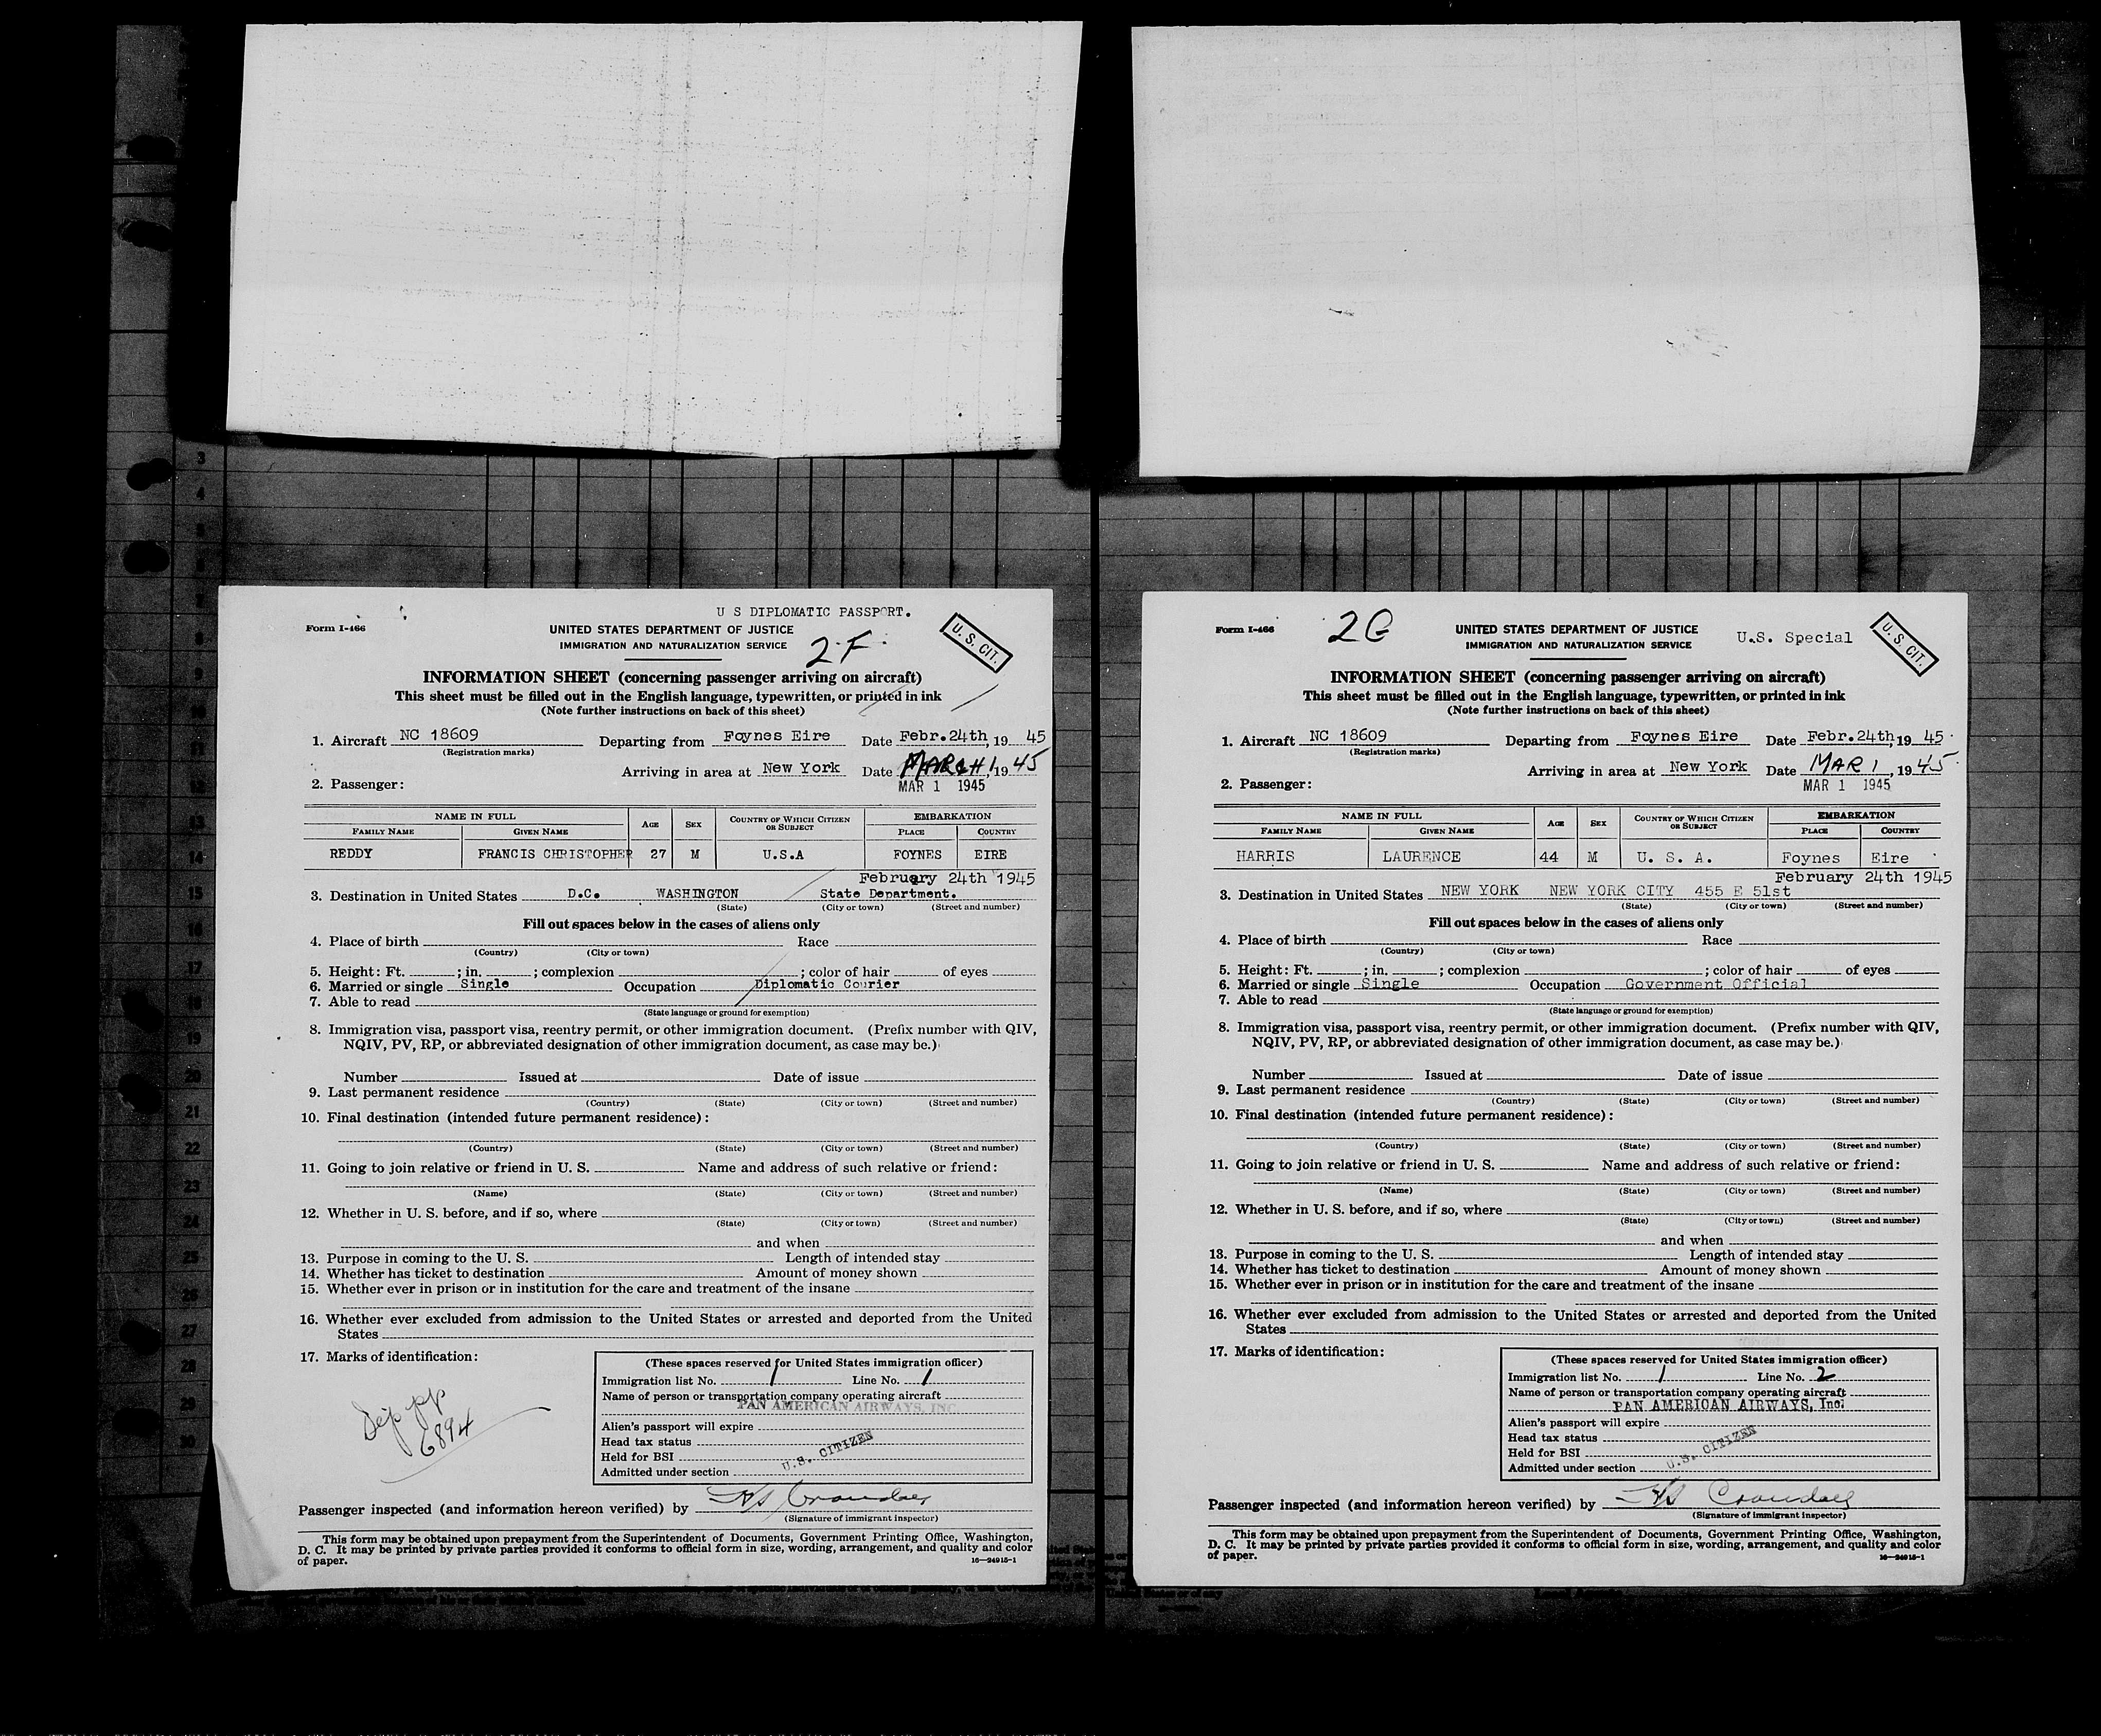 U S DIPLOMATIC PASSPORT.
Form I-466
UNITED STATES DEPARTMENT OF JUSTICE
IMMIGRATION AND NATURALIZATION SERVICE
2F
U. S. CIT.
INFORMATION SHEET (concerning passenger arriving on aircraft)
This sheet must be filled out in the English language, typewritten, or printed in ink
(Note further instructions on back of this sheet)
1. Aircraft NC 18609 Departing from Foynes Eire Date Febr.24th, 19 45
(Registration marks)
Arriving in area at New York Date MARCH 1, 19 45
2. Passenger: MAR 1 1945
NAME IN FULL AGE SEX COUNTRY OF WHICH CITIZEN OR SUBJECT EMBARKATION
FAMILY NAME GIVEN NAME PLACE COUNTRY
REDDY FRANCIS CHRISTOPHER 27 M U.S.A FOYNES EIRE
February 24th 1945
3. Destination in United States D.C. WASHINGTON State Department.
(State) (City or town) (Street and number)
Fill out spaces below in the cases of aliens only
4. Place of birth Race
(Country) (City or town)
5. Height: Ft. ; in. ; complexion ; color of hair of eyes
6. Married or single Single Occupation Diplomatic Courier
7. Able to read
(State language or ground for exemption)
8. Immigration visa, passport visa, reentry permit, or other immigration document. (Prefix number with QIV,
NQIV, PV, RP, or abbreviated designation of other immigration document, as case may be.)
Number Issued at Date of issue
9. Last permanent residence
(Country) (State) (City or town) (Street and number)
10. Final destination (intended future permanent residence):
(Country) (State) (City or town) (Street and number)
11. Going to join relative or friend in U. S. Name and address of such relative or friend:
(Name) (State) (City or town) (Street and number)
12. Whether in U. S. before, and if so, where
(State) (City or town) (Street and number)
and when
13. Purpose in coming to the U. S. Length of intended stay
14. Whether has ticket to destination Amount of money shown
15. Whether ever in prison or in institution for the care and treatment of the insane
16. Whether ever excluded from admission to the United States or arrested and deported from the United
States
17. Marks of identification:
6894
(These spaces reserved for United States immigration officer)
Immigration list No. 1 Line No. 1
Name of person or transportation company operating aircraft
PAN AMERICAN AIRWAYS, INC.
Alien's passport will expire
Head tax status
Held for BSI U.S. CITIZEN
Admitted under section
Passenger inspected (and information hereon verified) by
(Signature of immigrant inspector)
This form may be obtained upon prepayment from the Superintendent of Documents, Government Printing Office, Washington,
D. C. It may be printed by private parties provided it conforms to official form in size, wording, arrangement, and quality and color
of paper. 16—24915-1
Form I-466
2G
UNITED STATES DEPARTMENT OF JUSTICE
IMMIGRATION AND NATURALIZATION SERVICE
U.S. Special
U. S. CIT.
INFORMATION SHEET (concerning passenger arriving on aircraft)
This sheet must be filled out in the English language, typewritten, or printed in ink
(Note further instructions on back of this sheet)
1. Aircraft NC 18609 Departing from Foynes Eire Date Febr.24th, 19 45
(Registration marks)
Arriving in area at New York Date MAR 1, 19 45
2. Passenger: MAR 1 1945
NAME IN FULL AGE SEX COUNTRY OF WHICH CITIZEN OR SUBJECT EMBARKATION
FAMILY NAME GIVEN NAME PLACE COUNTRY
HARRIS LAURENCE 44 M U. S. A. Foynes Eire
February 24th 1945
3. Destination in United States NEW YORK NEW YORK CITY 455 E 51st
(State) (City or town) (Street and number)
Fill out spaces below in the cases of aliens only
4. Place of birth Race
(Country) (City or town)
5. Height: Ft. ; in. ; complexion ; color of hair of eyes
6. Married or single Single Occupation Government Official
7. Able to read
(State language or ground for exemption)
8. Immigration visa, passport visa, reentry permit, or other immigration document. (Prefix number with QIV,
NQIV, PV, RP, or abbreviated designation of other immigration document, as case may be.)
Number Issued at Date of issue
9. Last permanent residence
(Country) (State) (City or town) (Street and number)
10. Final destination (intended future permanent residence):
(Country) (State) (City or town) (Street and number)
11. Going to join relative or friend in U. S. Name and address of such relative or friend:
(Name) (State) (City or town) (Street and number)
12. Whether in U. S. before, and if so, where
(State) (City or town) (Street and number)
and when
13. Purpose in coming to the U. S. Length of intended stay
14. Whether has ticket to destination Amount of money shown
15. Whether ever in prison or in institution for the care and treatment of the insane
16. Whether ever excluded from admission to the United States or arrested and deported from the United
States
17. Marks of identification:
(These spaces reserved for United States immigration officer)
Immigration list No. 1 Line No. 2
Name of person or transportation company operating aircraft
PAN AMERICAN AIRWAYS, Inc.
Alien's passport will expire
Head tax status
Held for BSI U.S. CITIZEN
Admitted under section
Passenger inspected (and information hereon verified) by
(Signature of immigrant inspector)
This form may be obtained upon prepayment from the Superintendent of Documents, Government Printing Office, Washington,
D. C. It may be printed by private parties provided it conforms to official form in size, wording, arrangement, and quality and color
of paper. 16—24915-1